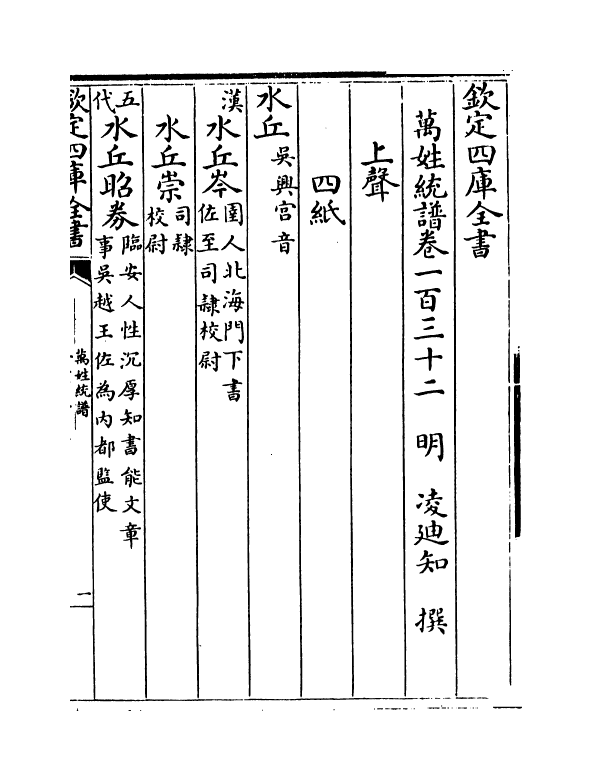 欽定四庫全書
萬姓統譜卷一百三十二　明　凌廸知　撰
上聲
四紙
水丘　吳興宫音
漢　水丘岑　圉人北海門下書
佐至司隸校尉
水丘崇　司隸
校尉
五代　水丘昭券　臨安人性沉厚知書能文章
事吳越王佐為内都監使
欽定四庫全書
萬姓統譜
一